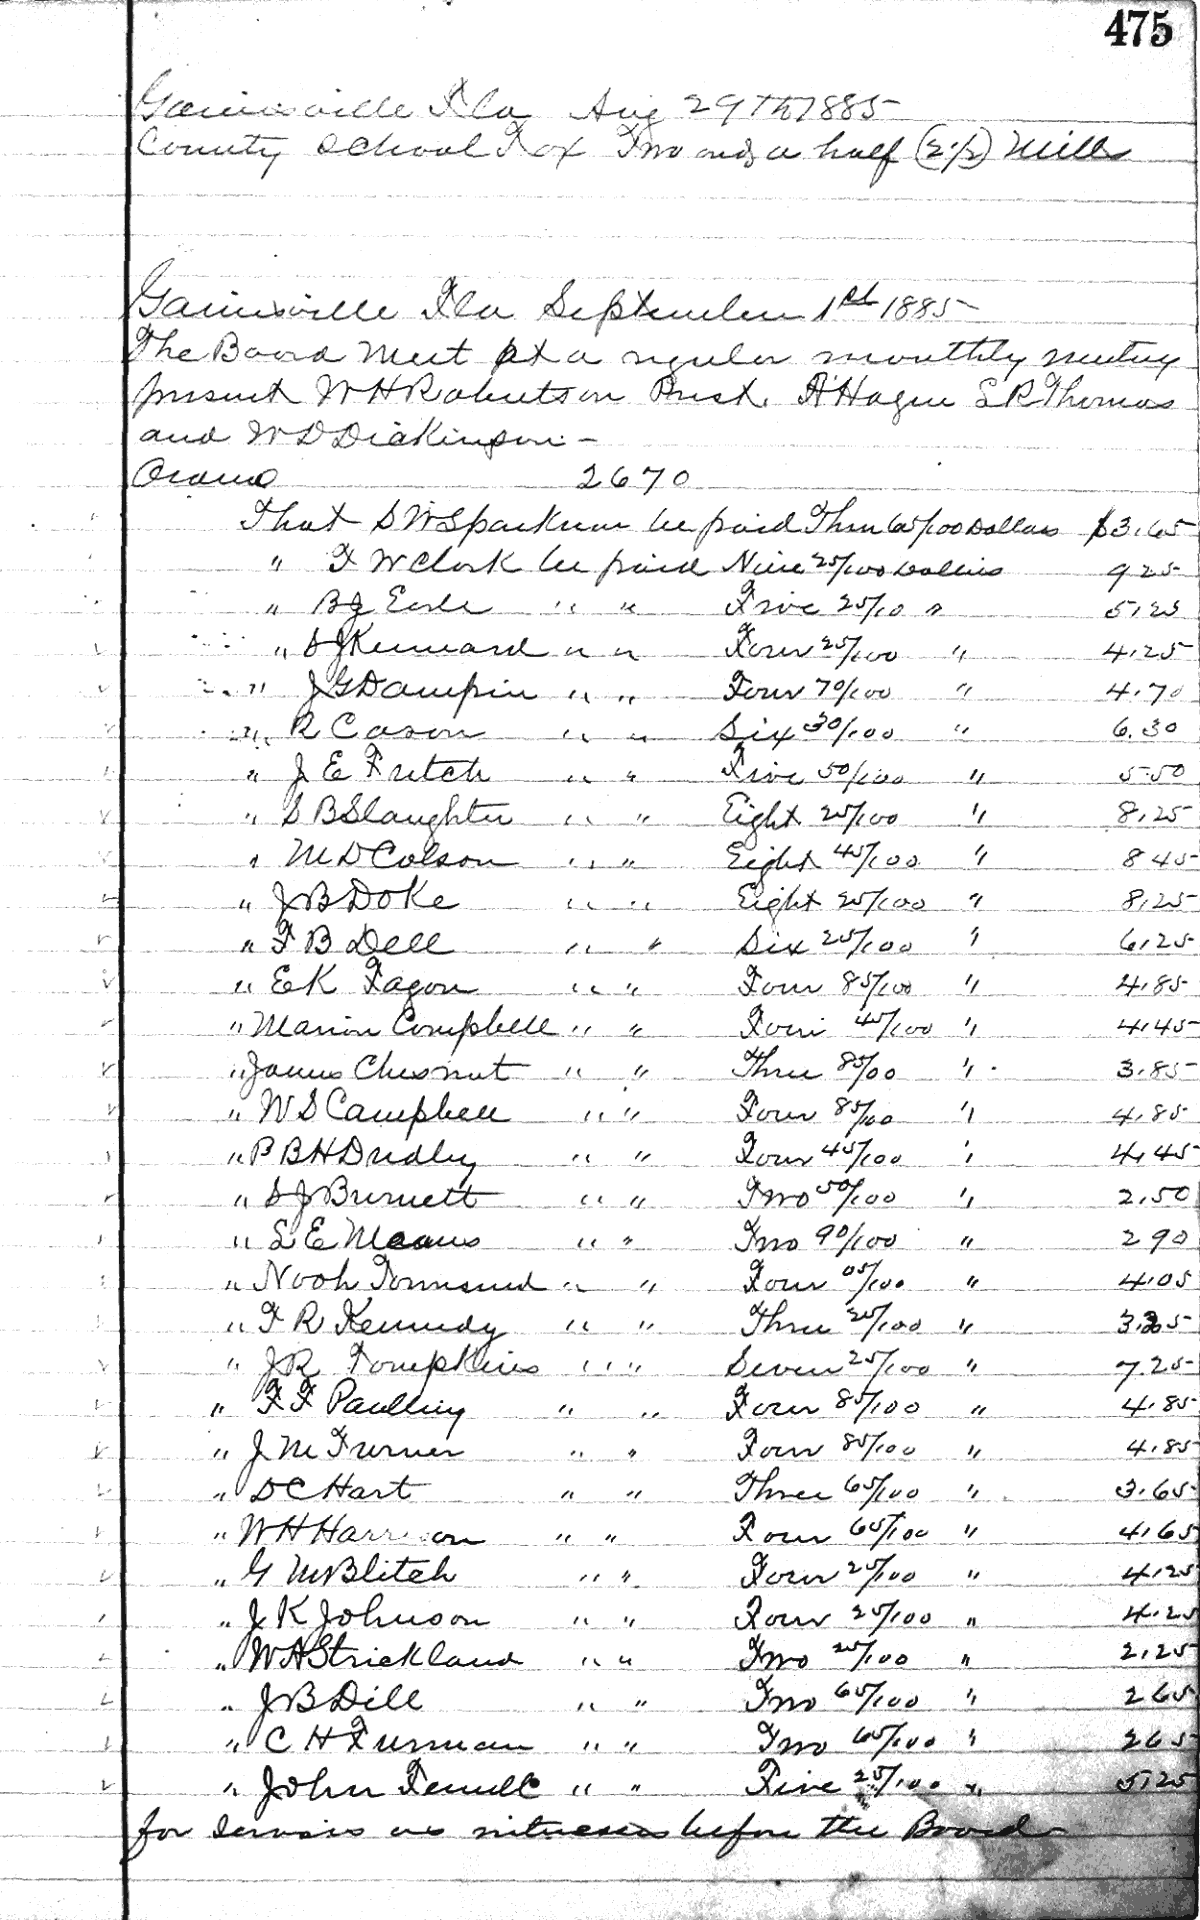 475
Gainesville Fla Aug 29th 1885
County School Tax Two and a half (2 1/2) Mills
Gainesville Fla September 1st 1885
The Board Meet at a regular monthly meeting
present W H Robertson Prest. A Hague L R Thomas
and W D Dickinson -
2670
That S W Sparkman be paid Three 65/100 Dollars $3.65
" F W Clark be paid Nine 25/100 Dollars 9 25
" B J Earle " " Five 25/10 " 5.25
" S J Kennard " " Four 25/100 " 4.25
" J G Dampin " " Four 70/100 " 4.70
" R Cason " " Six 30/100 " 6.30
" J E Futch " " Five 50/100 " 5.50
" S B Slaughter " " Eight 25/100 " 8.25
" M D Colson " " Eight 45/100 " 8 45
" J B Doke " " Eight 25/100 " 8.25
" F B Dell " " Six 25/100 " 6.25
" E K Fagon " " Four 85/100 " 4.85
" Marion Campbell " " Four 45/100 " 4.45
" James Chesnut " " Three 85/00 " 3.85
" W S Campbell " " Four 85/00 " 4.85
" P B H Dudley " " Four 45/100 " 4.45
" S J Burnett " " Two 50/100 " 2.50
" L E Means " " Two 90/100 " 2 90
" Noah Townsend " " Four 05/100 " 4.05
" F R Kennedy " " Three 25/100 " 3.25
" J R Tompkins " " Seven 25/100 " 7.25
" F F Paulling " " Four 85/100 " 4.85
" J M Turner " " Four 85/100 " 4.85
" D C Hart " " Three 65/100 " 3.65
" W H Harrison " " Four 65/100 " 4.65
" G M Blitch " " Four 25/100 " 4.25
" J K Johnson " " Four 25/100 " 4.25
" W A Strickland " " Two 25/100 " 2.25
" J B Dill " " Two 65/100 " 2 65
" C H Furman " " Two 65/100 " 2 65
" John " " Five 25/100 " 5.25
for servises as witnesses before the Board